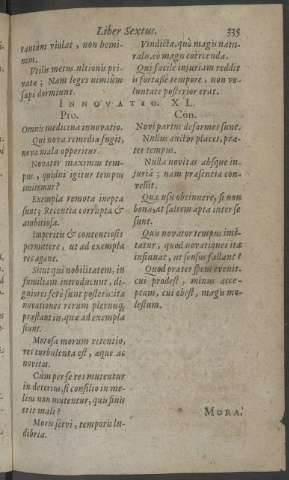 Liber Sextus. 335
tantùm violat, non homi-
nem.
Utilis metus ultionis pri-
vatæ; Nam leges nimiùm
sæpè dormiunt.
Vindicta, quò magis natu-
ralis, eò magis coërcenda.
Qui facilè injuriam reddit
is fortasse tempore, non vo-
luntate posterior erat.
INNOVATIO. XL.
Pro.
Omnis medicina innovatio.
Qui nova remedia fugit,
nova mala opperitur.
Novator maximus tem-
pus, quidni igitur tempus
imitemur?
Exempla remota inepta
sunt; Recentia corrupta &
ambitiosa.
Imperitis & contentiosis
permittere, ut ad exempla
res agant.
Sicut qui nobilitatem, in
familiam introducunt, di-
gniores ferè sunt posteris: ita
novationes rerum plerunq;
præstant iis, quæ ad exempla
fiunt.
Morosa morum retentio,
res turbulenta est, æque ac
novitas.
Cùm per se res mutentur
in deterius, si consilio in me-
lius non mutentur, quis finis
erit mali?
Moris servi, temporis lu-
dibria.
Con.
Novi partus deformes sunt.
Nullus auctor placet, præ-
ter tempus.
Nulla novitas absque in-
juriâ; nam præsentia con-
vellit.
Quæ usu obtinuere, si non
bona, at saltem apta inter se
sunt.
Quis novator tempus imi-
tatur, quod novationes ita
insinuat, ut sensus fallant?
Quod præter spem evenit,
cui prodest, minus acce-
ptum, cui obest, magis mo-
lestum.
MORA.